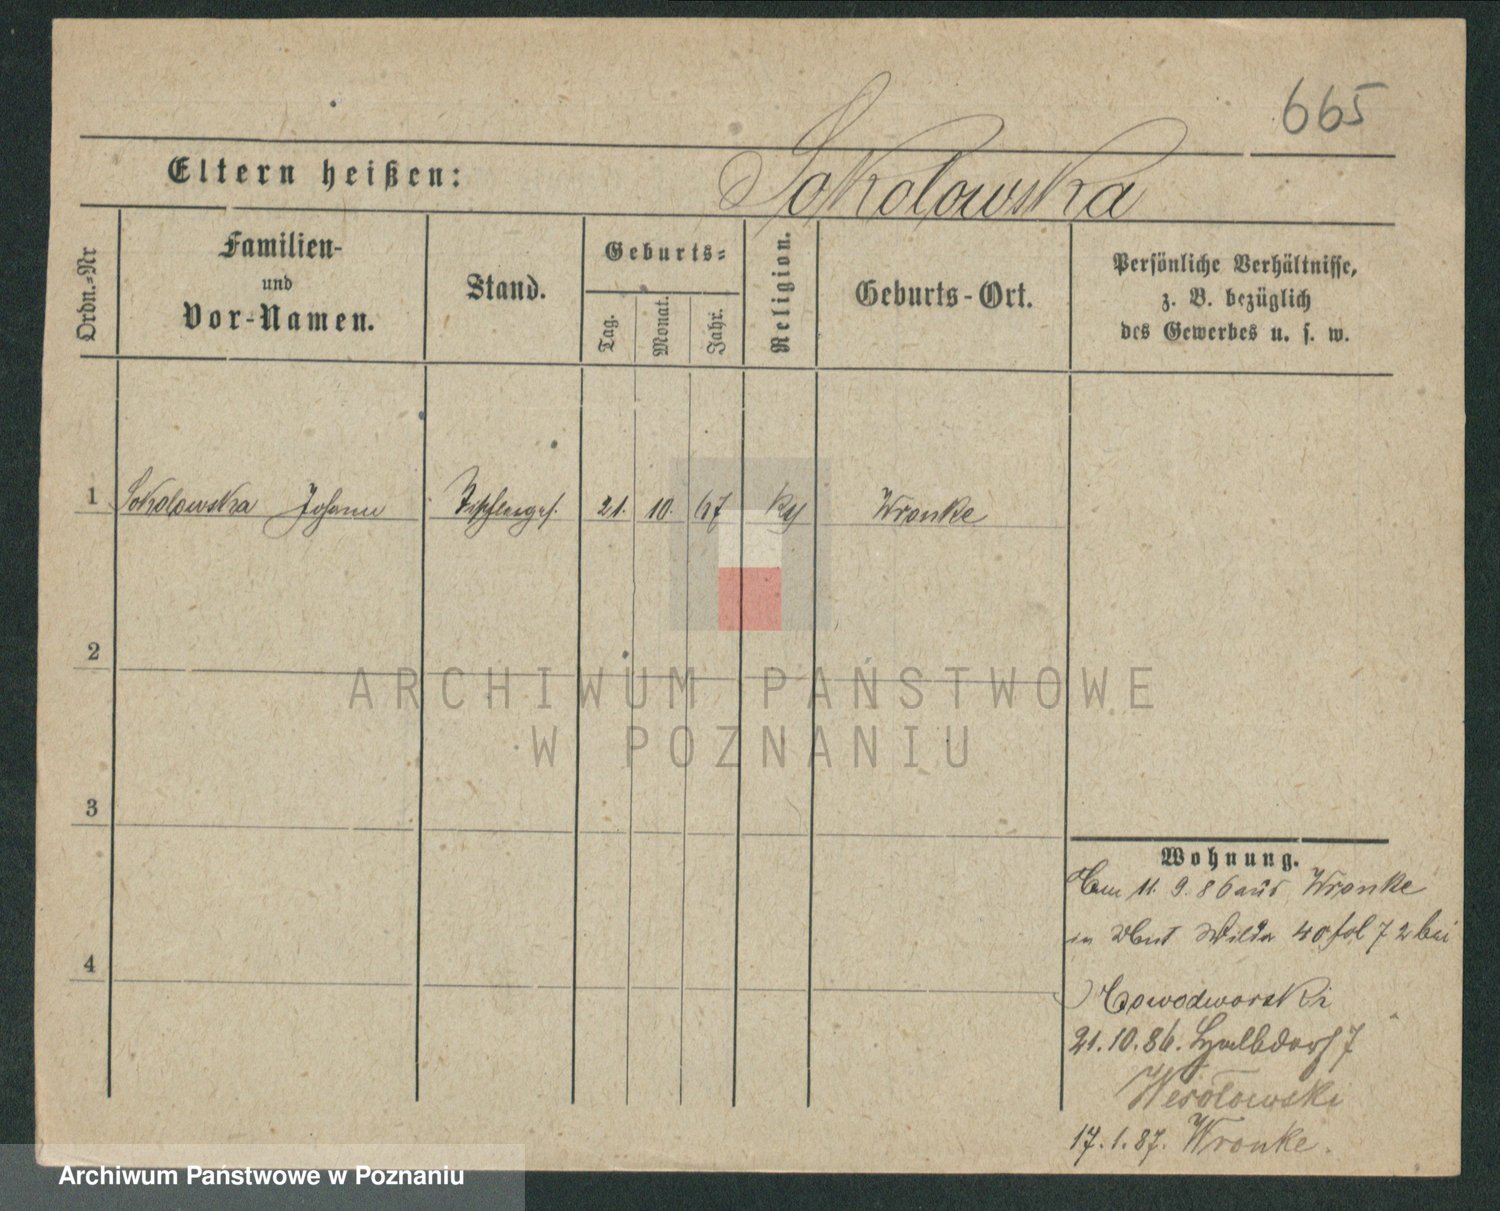 665
Eltern heißen: Sokolowska
Ordn.-Nr
Familien-
und
Vor-Namen.
Stand.
Geburts-
Tag.
Monat.
Jahr.
Religion.
Geburts-Ort.
Persönliche Verhältnisse,
z. B. bezüglich
des Gewerbes u. s. w.
1 Sokolowska Johann Tischlerges. 21. 10. 67 Wronke
2
ARCHIWUM PAŃSTWOWE
W POZNANIU
3
4
Wohnung.
11. 9. 86 aus Wronke
in Wilda 40 fol 72 bei
Nowodworski
21. 10. 86. Halbdorf 7
Wesołowski
17. 1. 87. Wronke.
Archiwum Państwowe w Poznaniu